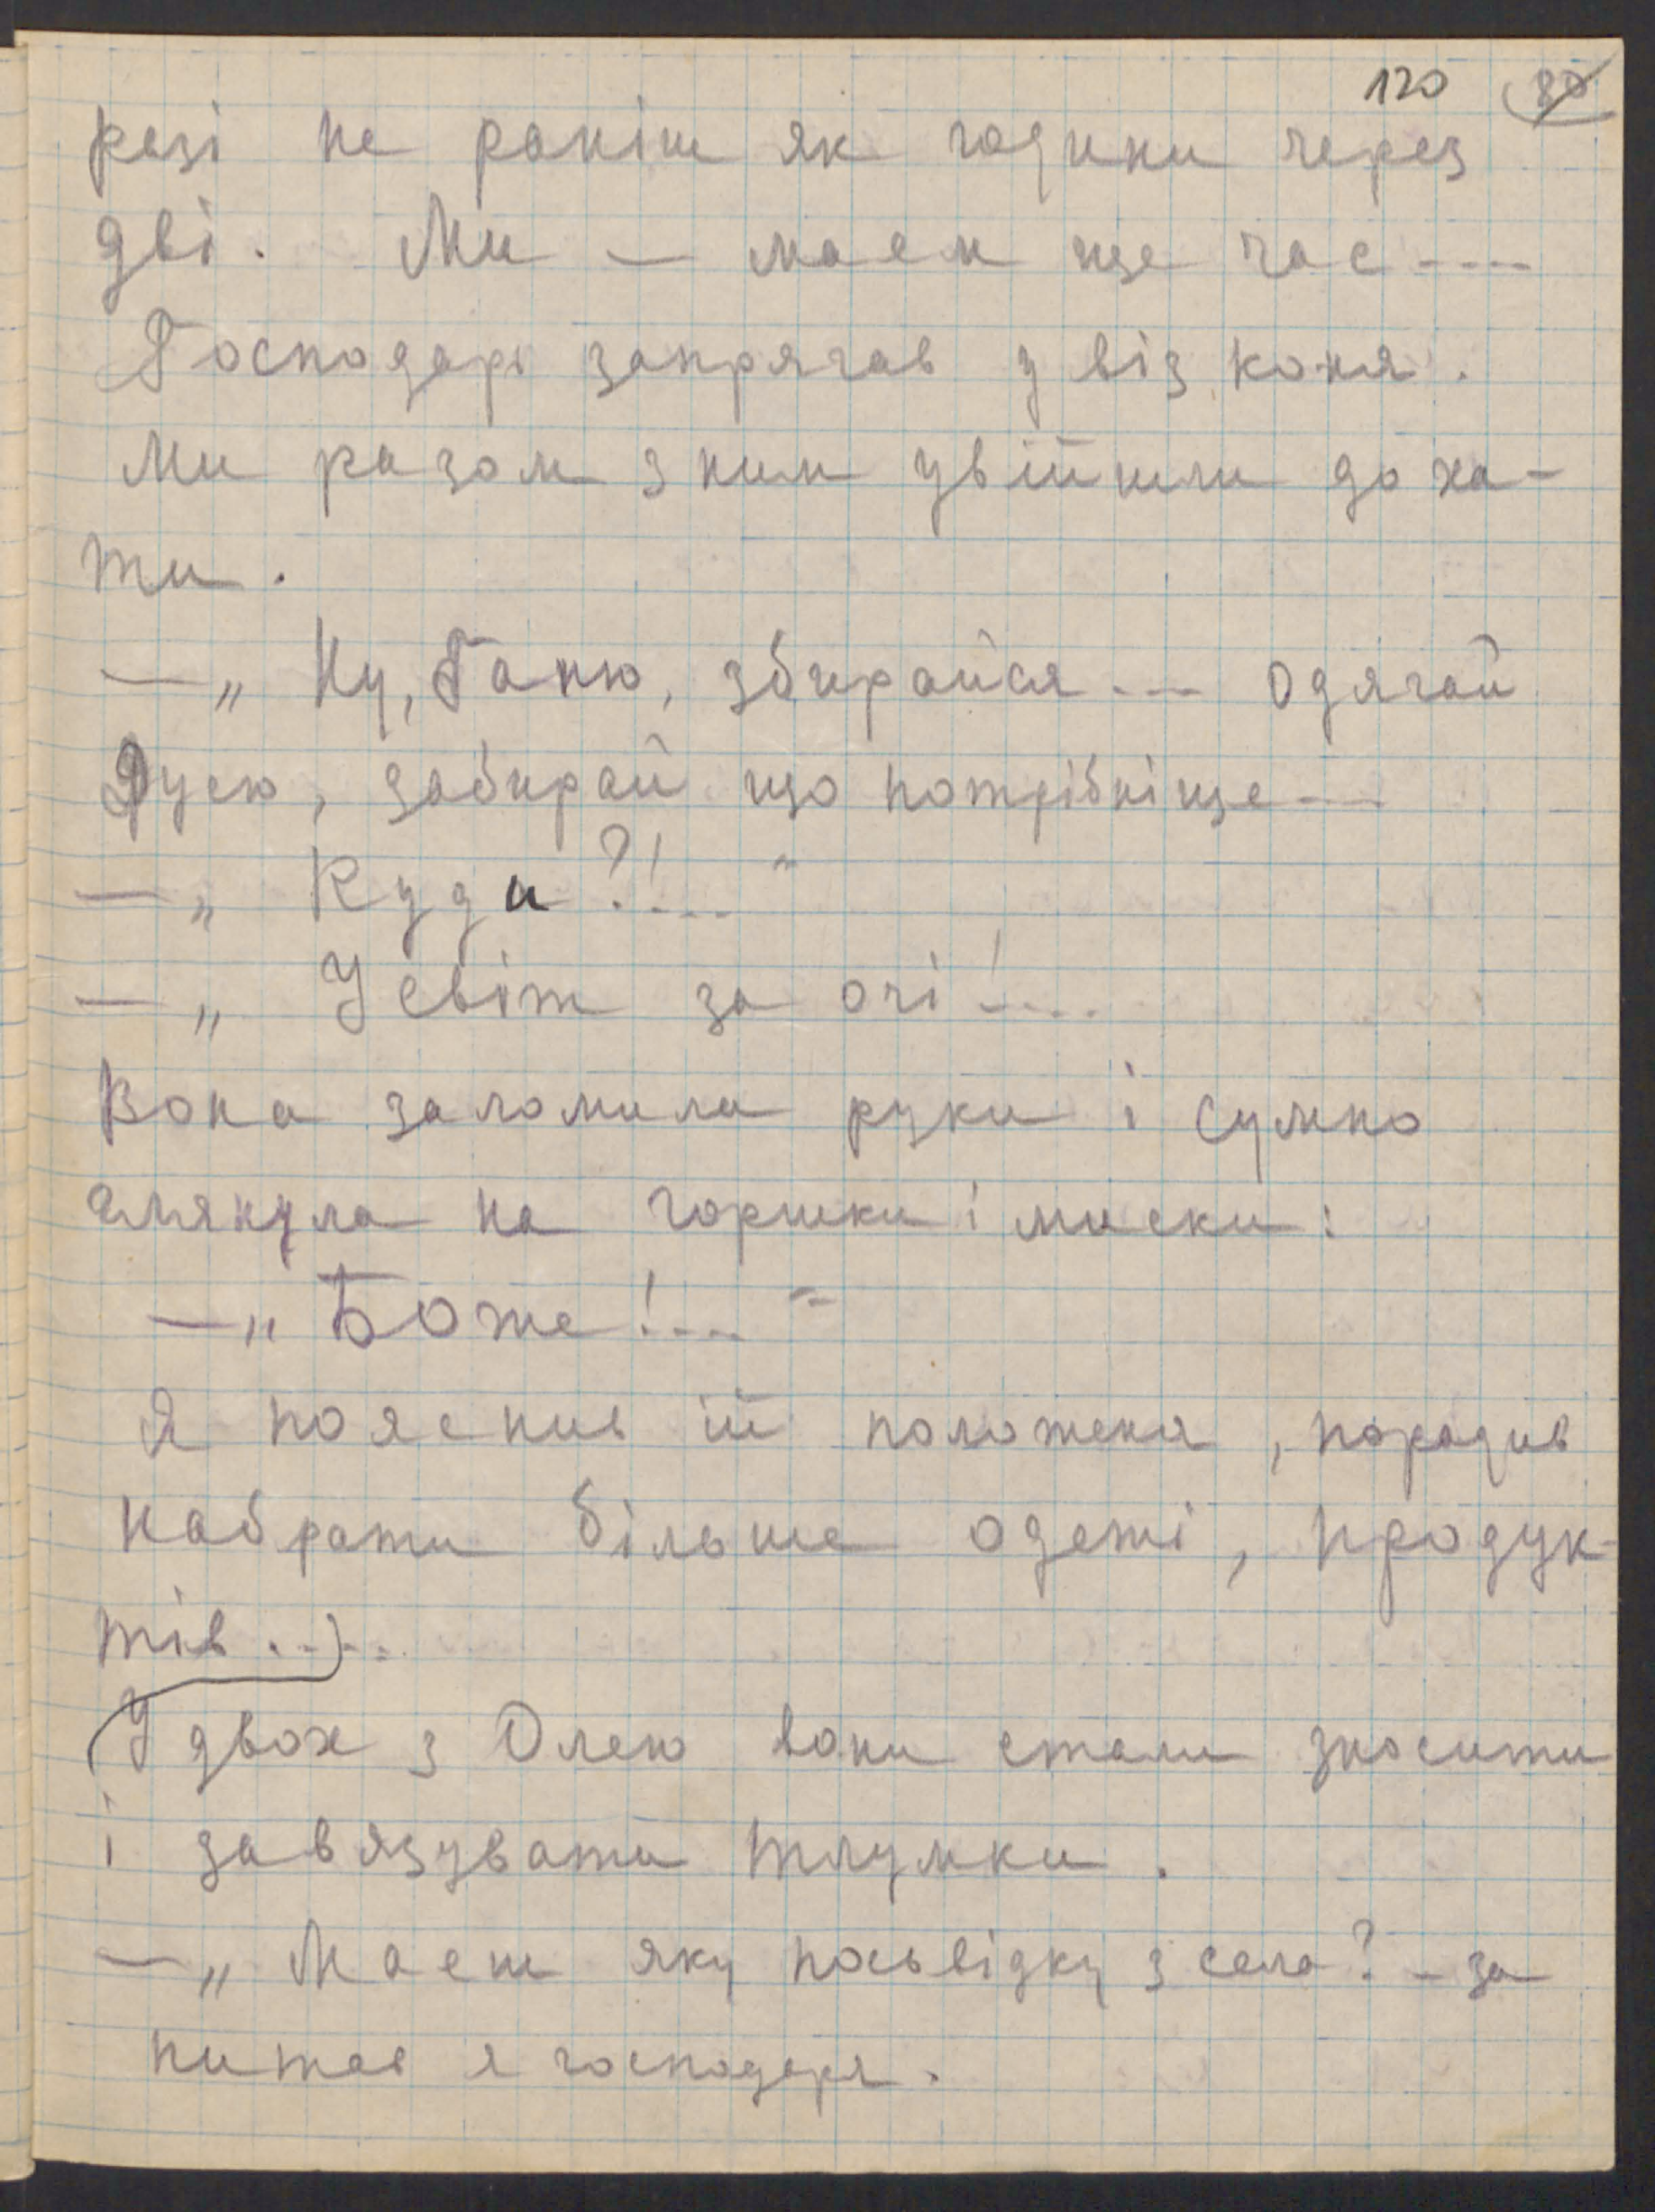 120
резі не раніш як години через
дві. Ми — маєм ще час ....
Господарь запрягав у віз коня.
Ми разом з ним увійшли до ха-
ти.
— „ Ну, Ганю, збирайся ... Одягай
Дусю, забирай що потрібніще ...
— „ Куди?!.... “
— „ У світ за очі!....
Вона заломила руки і сумно
глянула на горшки і миски:
— „ Боже!.... “
Я пояснив їй положеня, порадив
набрати більше одежі, продук-
тів .....
У двох з Олею вони стали зносити
і завязувати тлумки.
— „ Маєш яку посьвідку з села? - за
питав я господаря.